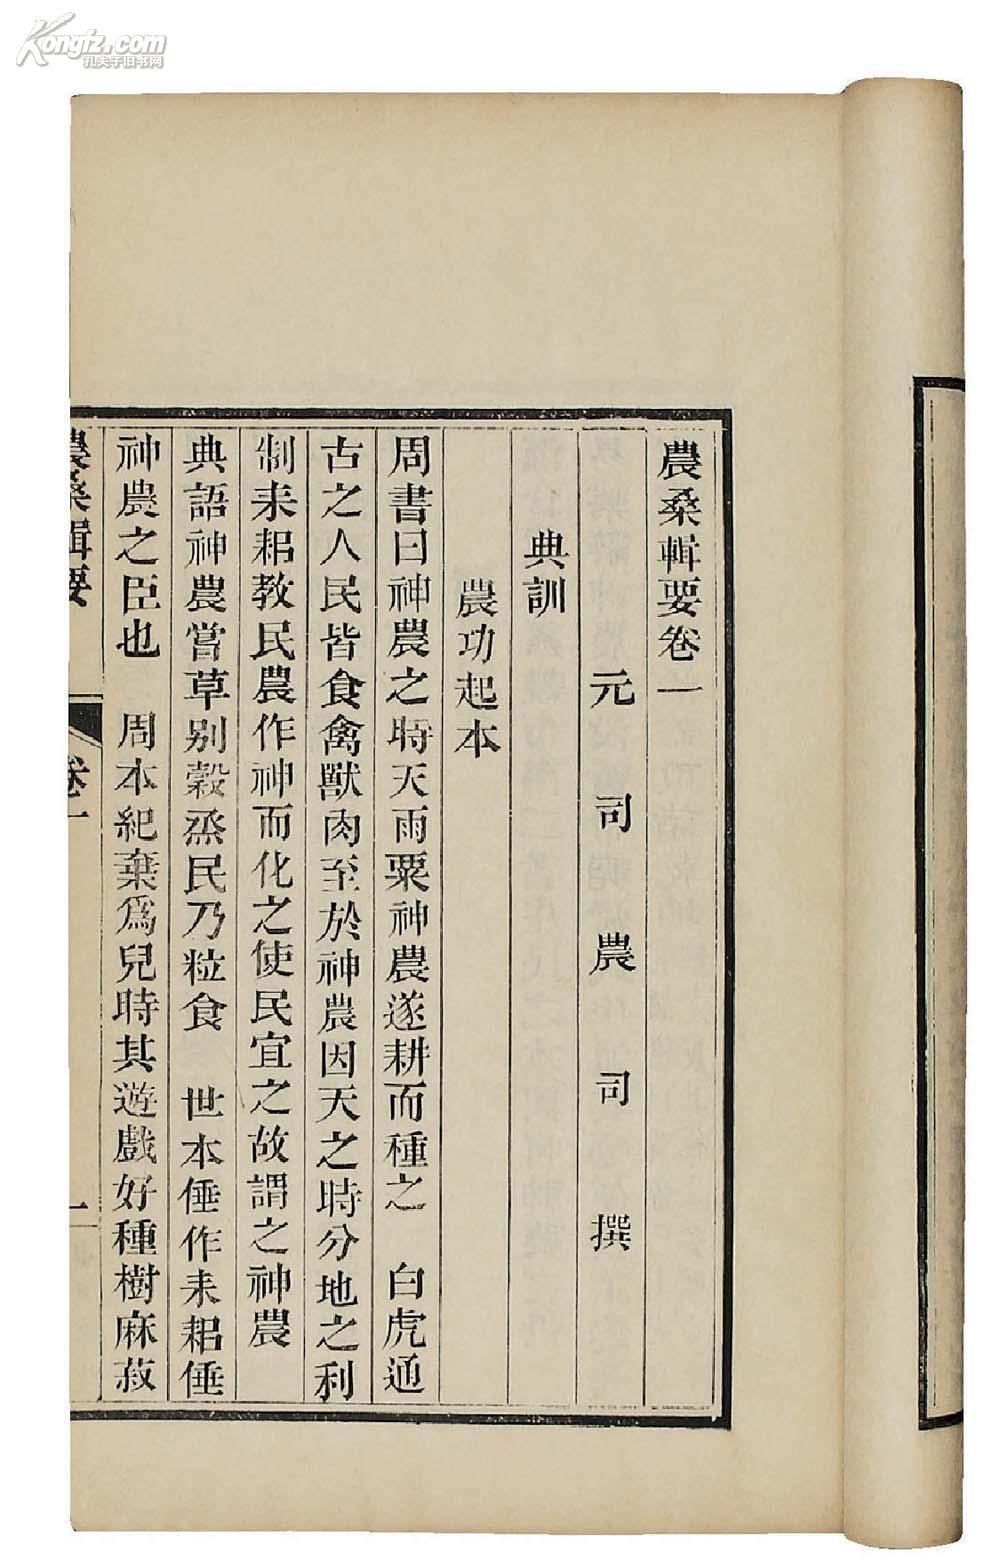 農桑輯要卷一
元司農司撰
典訓
農功起本
周書曰神農之時天雨粟神農遂耕而種之　白虎通
古之人民皆食禽獸肉至於神農因天之時分地之利
制耒耜教民農作神而化之使民宜之故謂之神農
典語神農嘗草别穀烝民乃粒食　世本倕作耒耜倕
神農之臣也　周本紀棄爲兒時其遊戲好種樹麻菽
農桑輯要　卷一　一
Kongfz.com
孔夫子旧书网